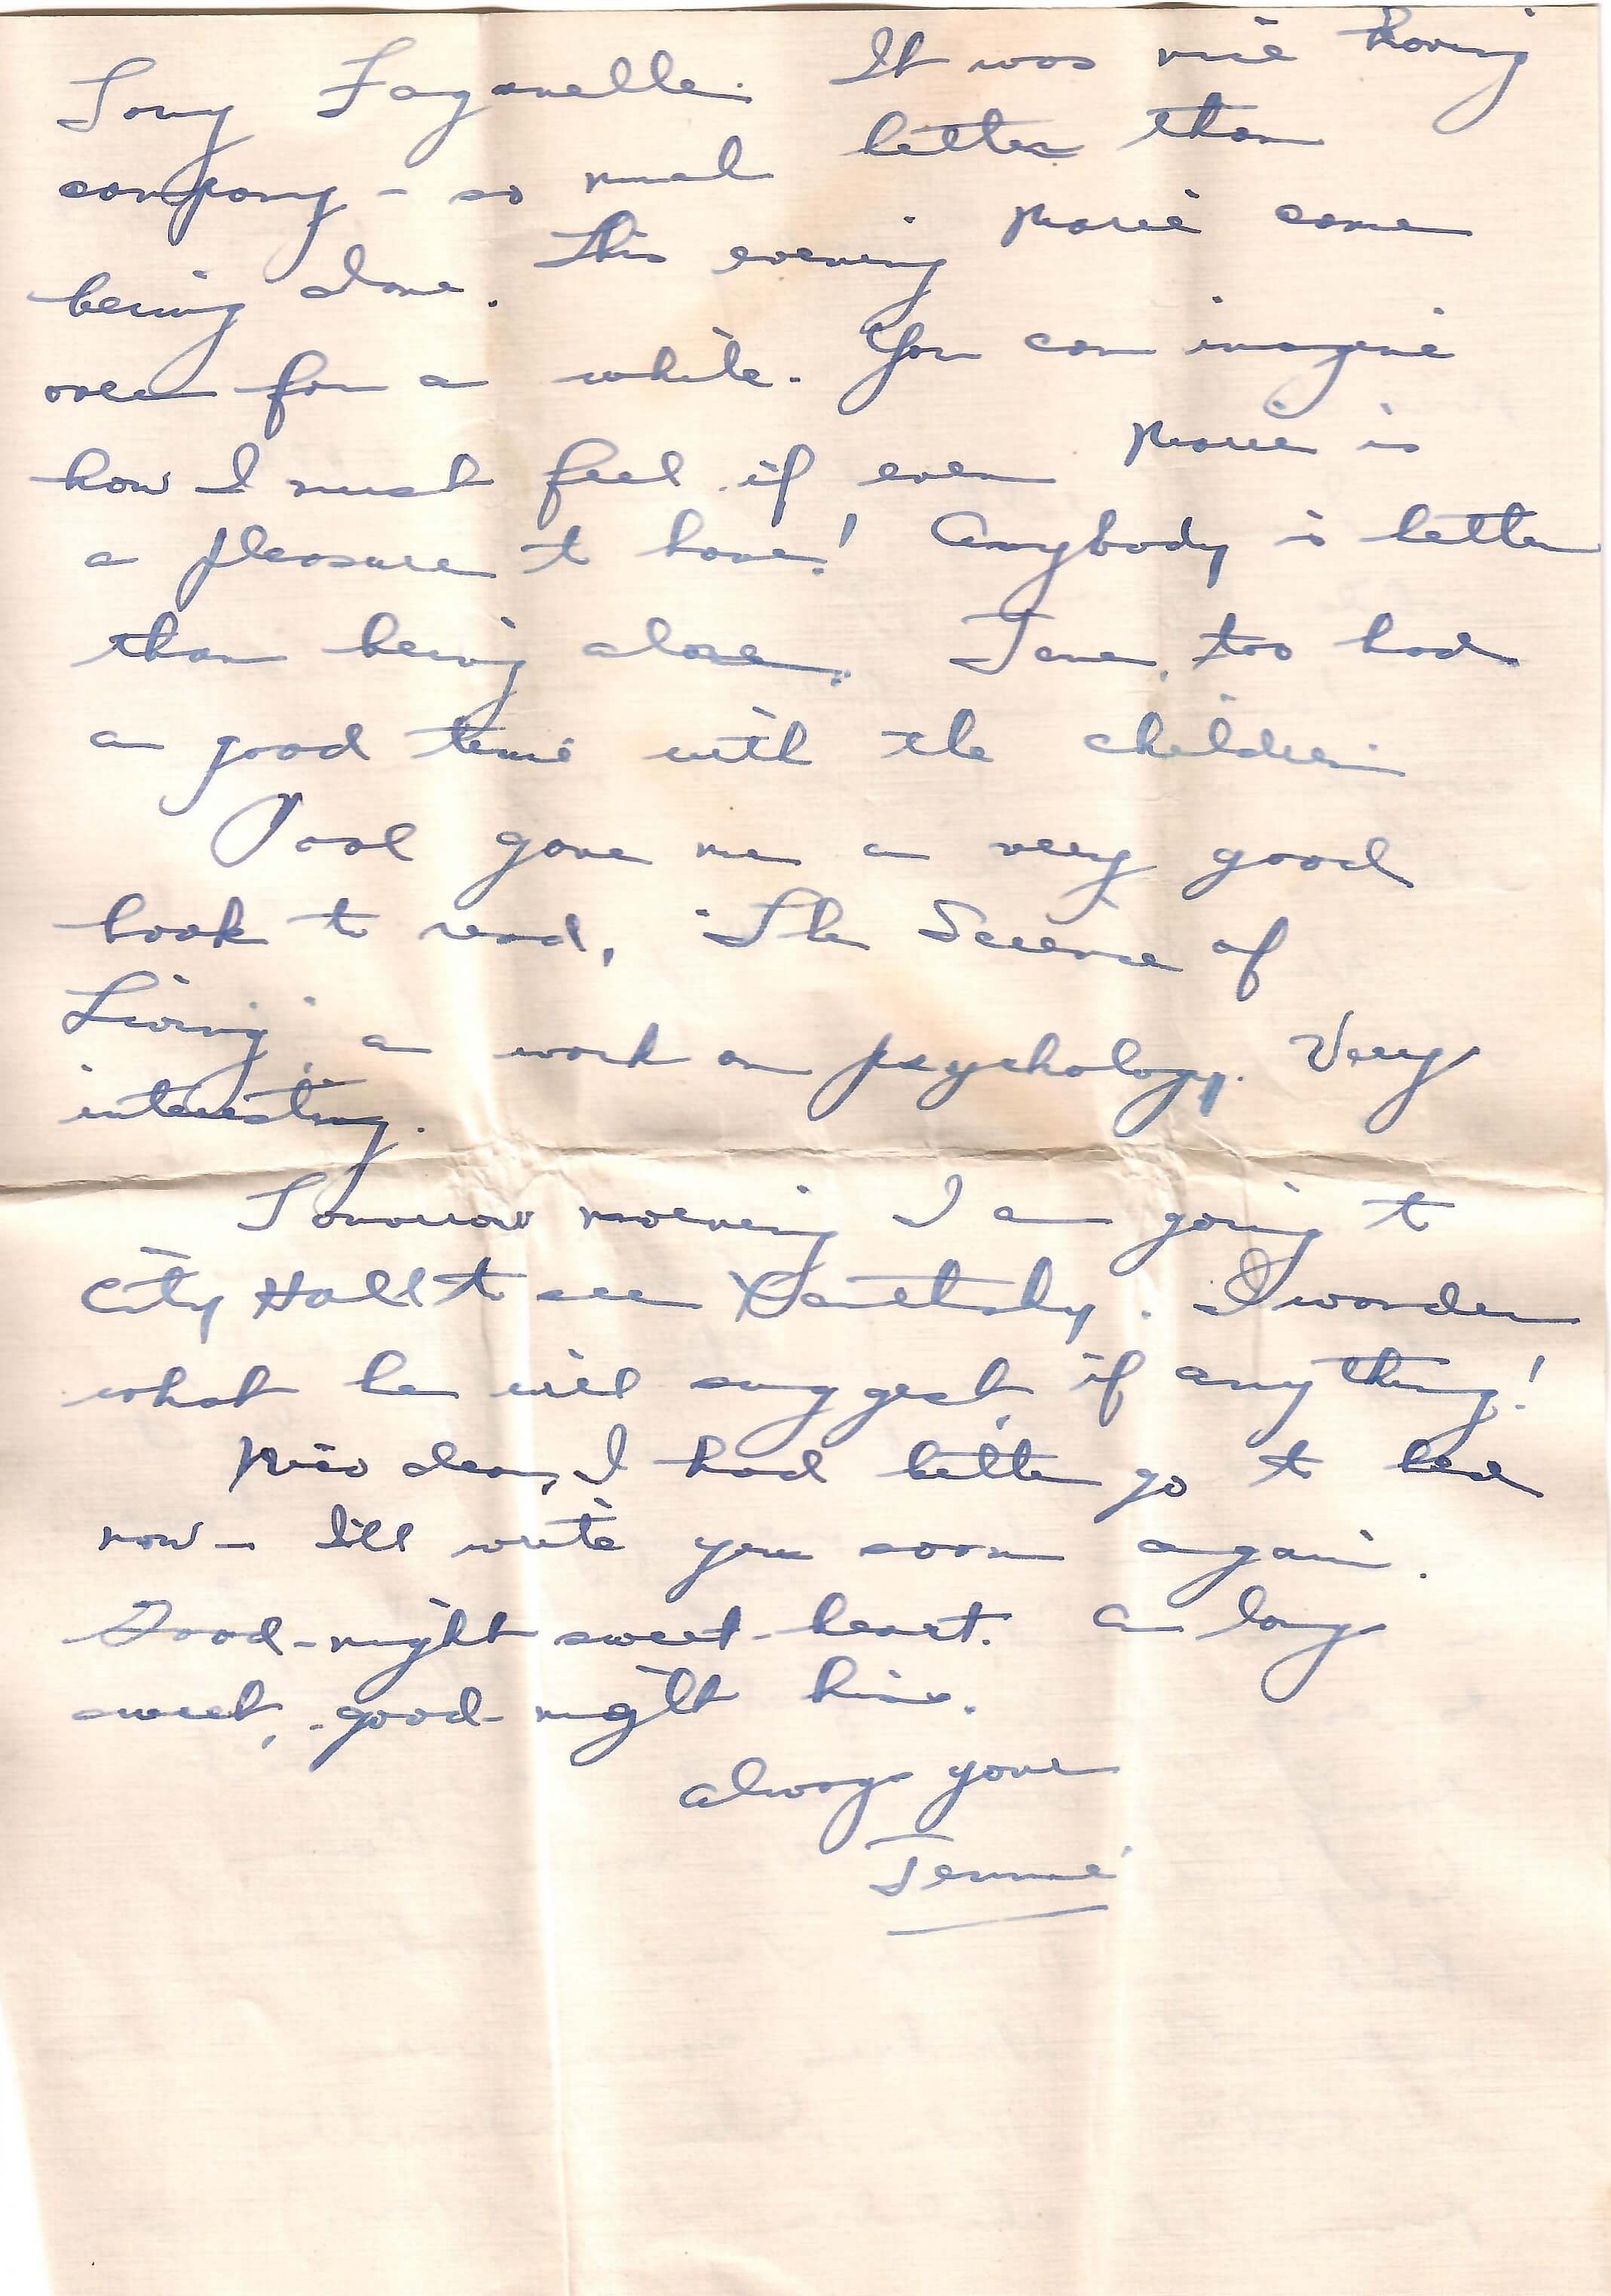 Tony Faganelle. It was nice having
company - so much better than
being alone. This evening Marie came
over for a while. You can imagine
how I must feel if even Marie is
a pleasure to have! Anybody is better
than being alone. Jene, too had
a good time with the children.
Paul gave me a very good
book to read, "The Science of
Living", a work on psychology. Very
interesting.
Tomorrow morning I am going to
City Hall to see . I wonder
what he will suggest, if anything!
Mio dear, I had better go to bed
now - I'll write you soon again.
Good-night sweet-heart. A long
sweet, good-night kiss.
Always yours
Jennie